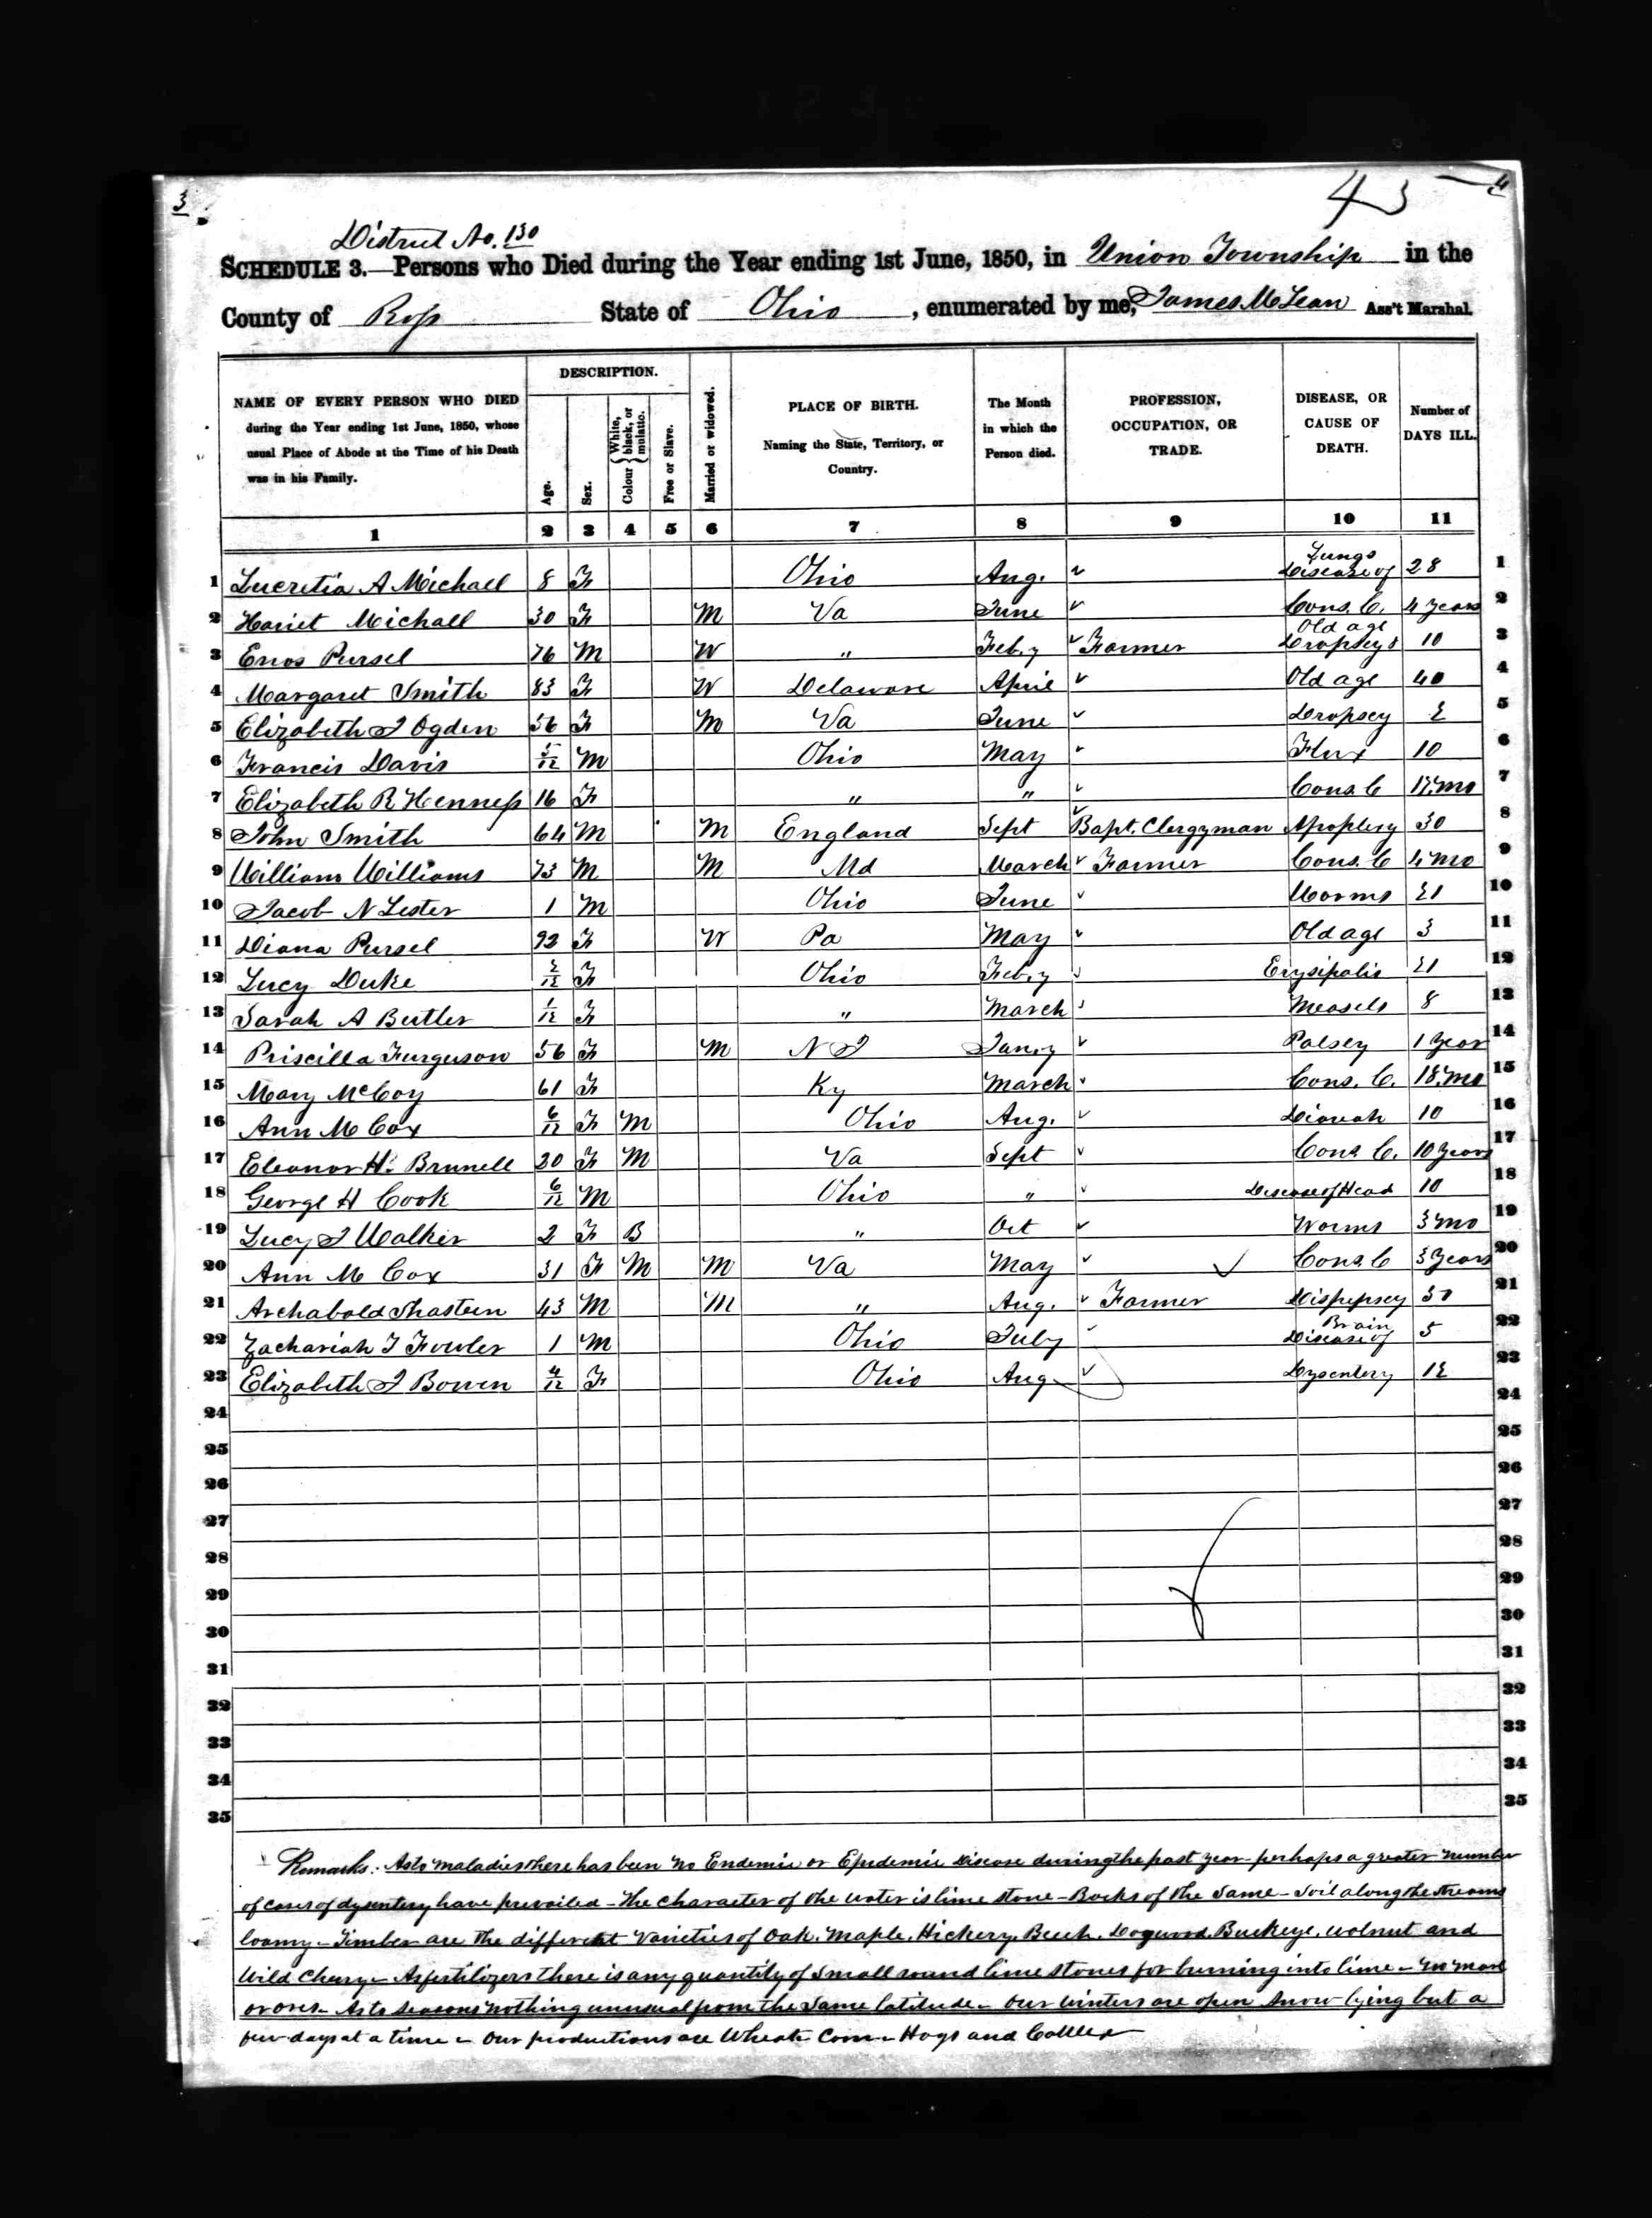 3
43
4
District No. 130
SCHEDULE 3.—Persons who Died during the Year ending 1st June, 1850, in Union Township in the
County of Ross State of Ohio, enumerated by me, James McLean Ass't Marshal.
NAME OF EVERY PERSON WHO DIED during the Year ending 1st June, 1850, whose usual Place of Abode at the Time of his Death was in his Family.
DESCRIPTION.
Age.
Sex.
Colour { White, black, or mulatto.
Free or Slave.
Married or widowed.
PLACE OF BIRTH. Naming the State, Territory, or Country.
The Month in which the Person died.
PROFESSION, OCCUPATION, OR TRADE.
DISEASE, OR CAUSE OF DEATH.
Number of DAYS ILL.
1 2 3 4 5 6 7 8 9 10 11
1 Lucretia A Michael 8 F Ohio Aug. Lungs Disease of 28 1
2 Hariet Michael 30 F M Va June Cons. C. 4 years 2
3 Enos Pursel 76 M W " Feb.y Farmer Old age Dropsey & 10 3
4 Margaret Smith 83 F W Delaware April Old age 40 4
5 Elizabeth J Ogden 56 F M Va June Dropsey 2 5
6 Francis Davis 5/12 M Ohio May Flux 10 6
7 Elizabeth R Henness 16 F " " Cons. C mo 7
8 John Smith 64 M M England Sept Bapt. Clergyman Apoplexy 30 8
9 William Williams 73 M M Md March Farmer Cons. C 4 mo 9
10 Jacob N Lester 1 M Ohio June Worms 21 10
11 Diana Pursel 92 F W Pa May Old age 3 11
12 Lucy Duke 2/12 F Ohio Feb.y Erysipalis 21 12
13 Sarah A Butler 1/12 F " March Measels 8 13
14 Priscilla Furguson 56 F M N J Jan.y Palsey 1 year 14
15 Mary McCoy 61 F Ky March Cons. C. 18 mo 15
16 Ann M Cox 6/12 F M Ohio Aug. Diareah 10 16
17 Eleanor H. Brunell 20 F M Va Sept Cons. C. 10 years 17
18 George H Cook 6/12 M Ohio " Disease of Head 10 18
19 Lucy J Walker 2 F B " Oct Worms 3 mo 19
20 Ann M Cox 31 F M M Va May Cons. C 3 years 20
21 Archabold Shasteen 43 M M " Aug. Farmer Dispepsey 30 21
22 Zachariah T Fowler 1 M Ohio July Brain Disease of 5 22
23 Elizabeth J Bowen 4/12 F Ohio Aug Dysentery 12 23
24 24
25 25
26 26
27 27
28 28
29 29
30 30
31 31
32 32
33 33
34 34
35 35
Remarks: As to maladies there has been no Endemic or Epidemic Disease during the past year perhaps a greater number
of cases of dysentery have prevailed – The character of the water is lime stone – Rocks of the same – Soil along the streams
loamy – Timber are the different varieties of Oak, Maple, Hickery, Beech, Dogwood, Buckeye, walnut and
Wild Cherry – As fertilizers there is any quantity of small round lime stones for burning into lime – no marl
or ores – As to seasons nothing unusual from the same latitude – Our winters are open snow lying but a
few days at a time – Our productions are Wheat Corn – Hogs and Cattle